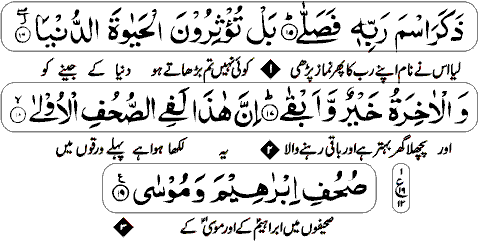 ذَكَرَ اسْمَ رَبِّهٖ فَصَلّٰىؕ ۱۵ بَلْ تُؤْثِرُوْنَ الْحَيٰوةَ الدُّنْيَا ۱۶
لیا اس نے نام اپنے رب کا پھر نماز پڑھی ۱ کوئی نہیں تم بڑھاتے ہو دنیا کے جینے کو
وَالْاٰخِرَةُ خَيْرٌ وَّاَبْقٰىؕ ۱۷ اِنَّ هٰذَا لَفِى الصُّحُفِ الْاُوْلٰى ۱۸
اور پچھلا گھر بہتر ہے اور باقی رہنے والا ۲ یہ لکھا ہوا ہے پہلے ورقوں میں
صُحُفِ اِبْرٰهِيْمَ وَمُوْسٰى ۱۹
صحیفوں میں ابراہیمؑ کے اور موسیٰؑ کے ۳